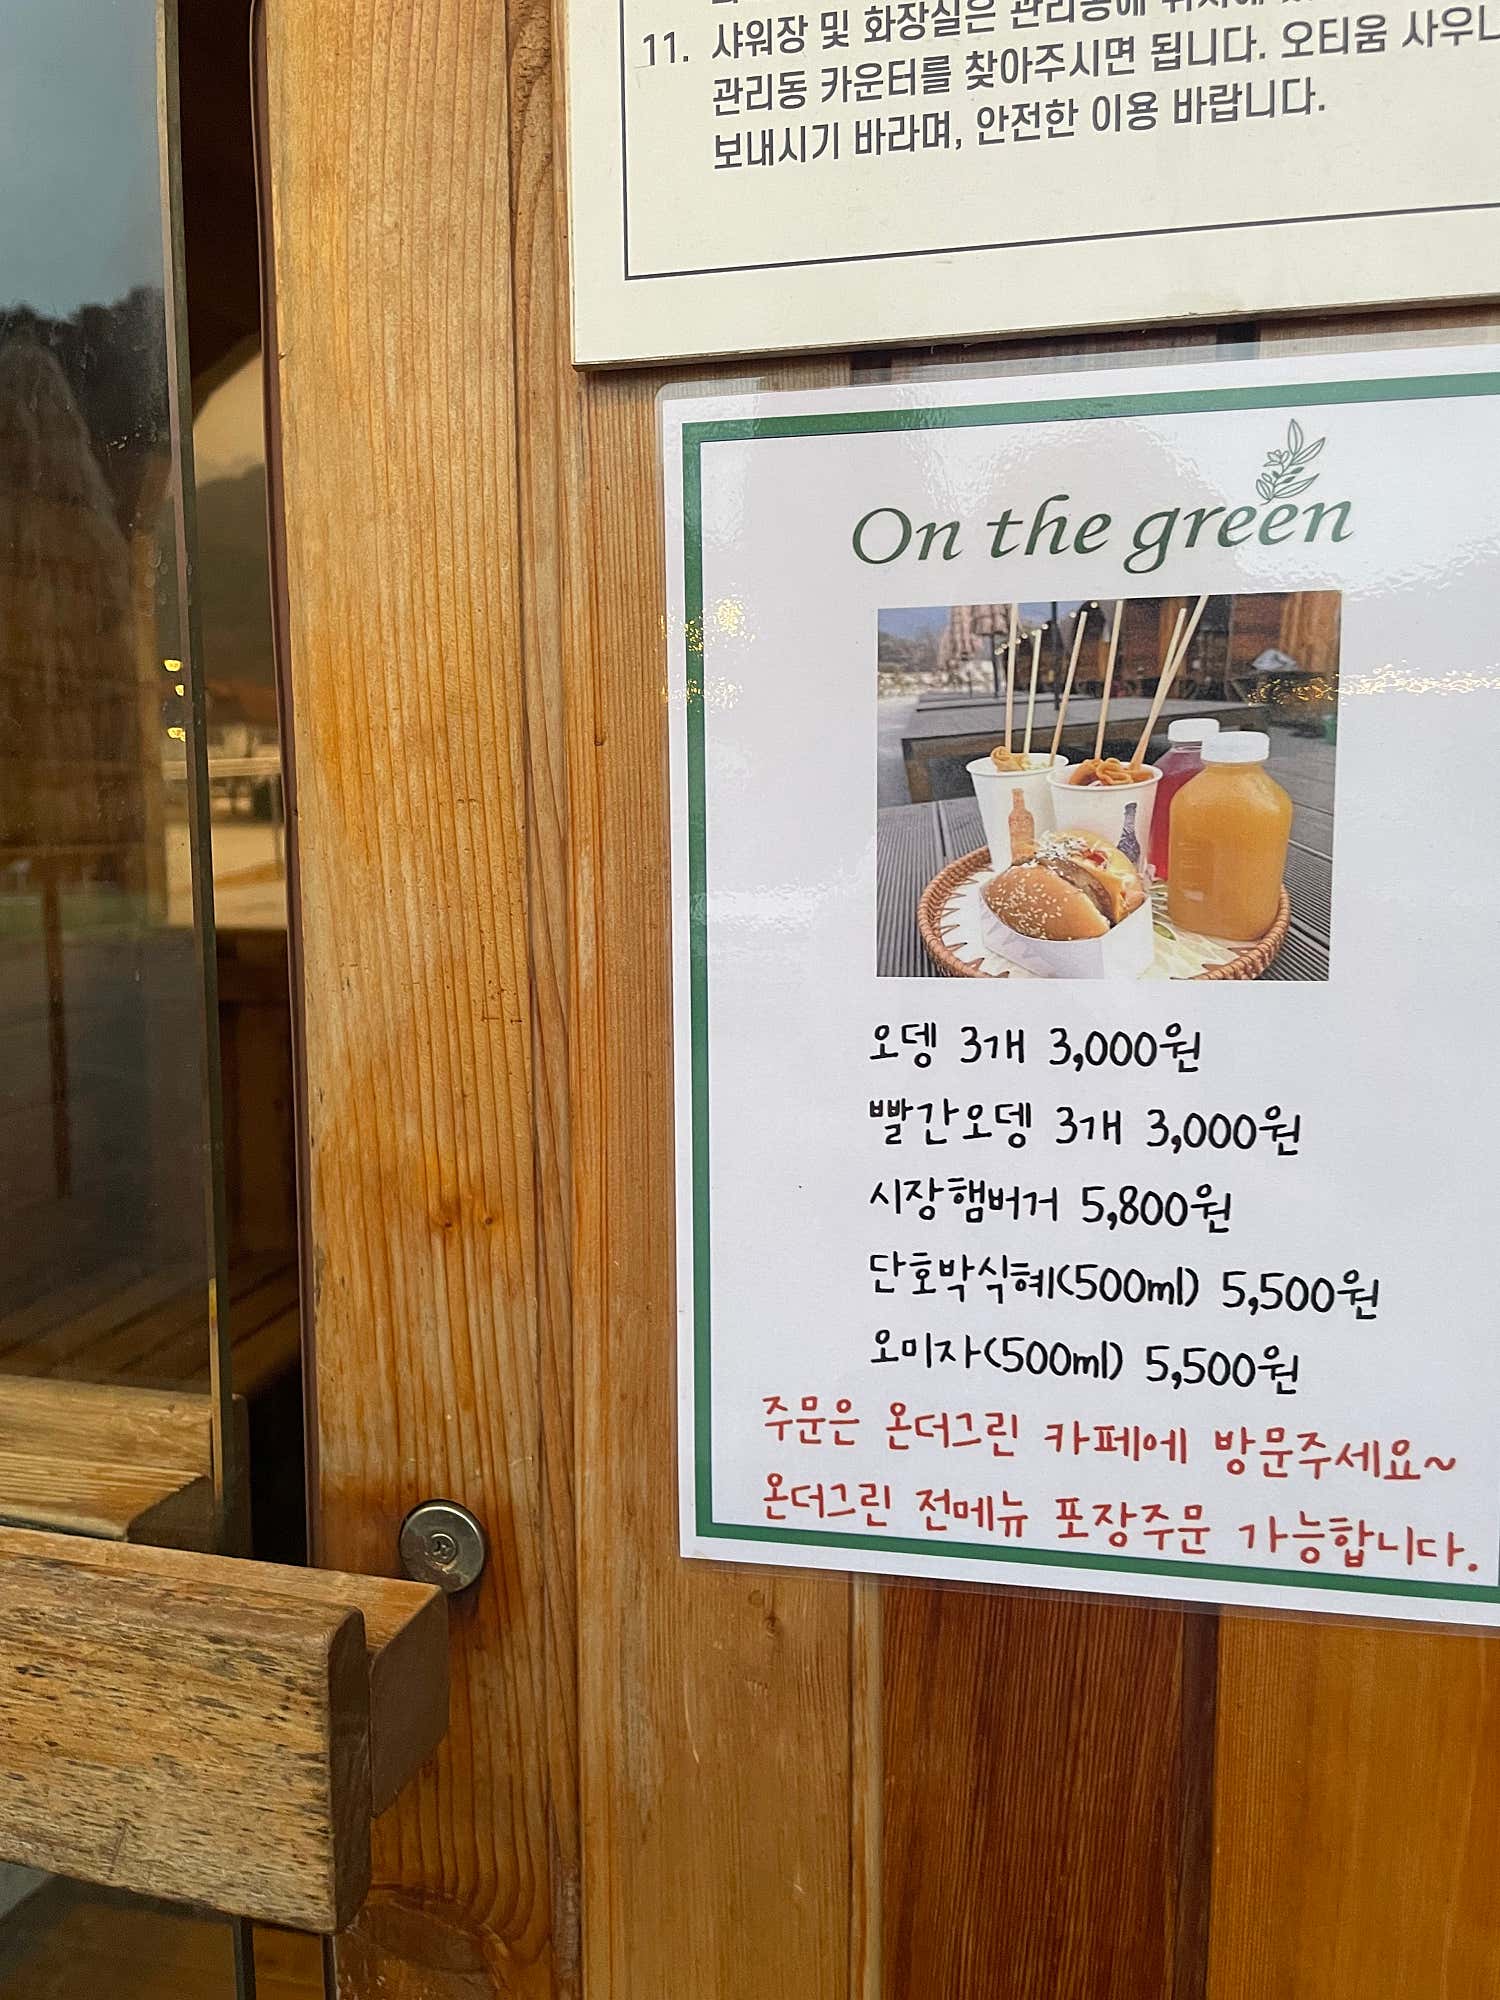 11. 샤워장 및 화장실은 관리동에
관리동 카운터를 찾아주시면 됩니다. 오티움 사우나
보내시기 바라며, 안전한 이용 바랍니다.
On the green
오뎅 3개 3,000원
빨간오뎅 3개 3,000원
시장햄버거 5,800원
단호박식혜(500ml) 5,500원
오미자(500ml) 5,500원
주문은 온더그린 카페에 방문주세요~
온더그린 전메뉴 포장주문 가능합니다.